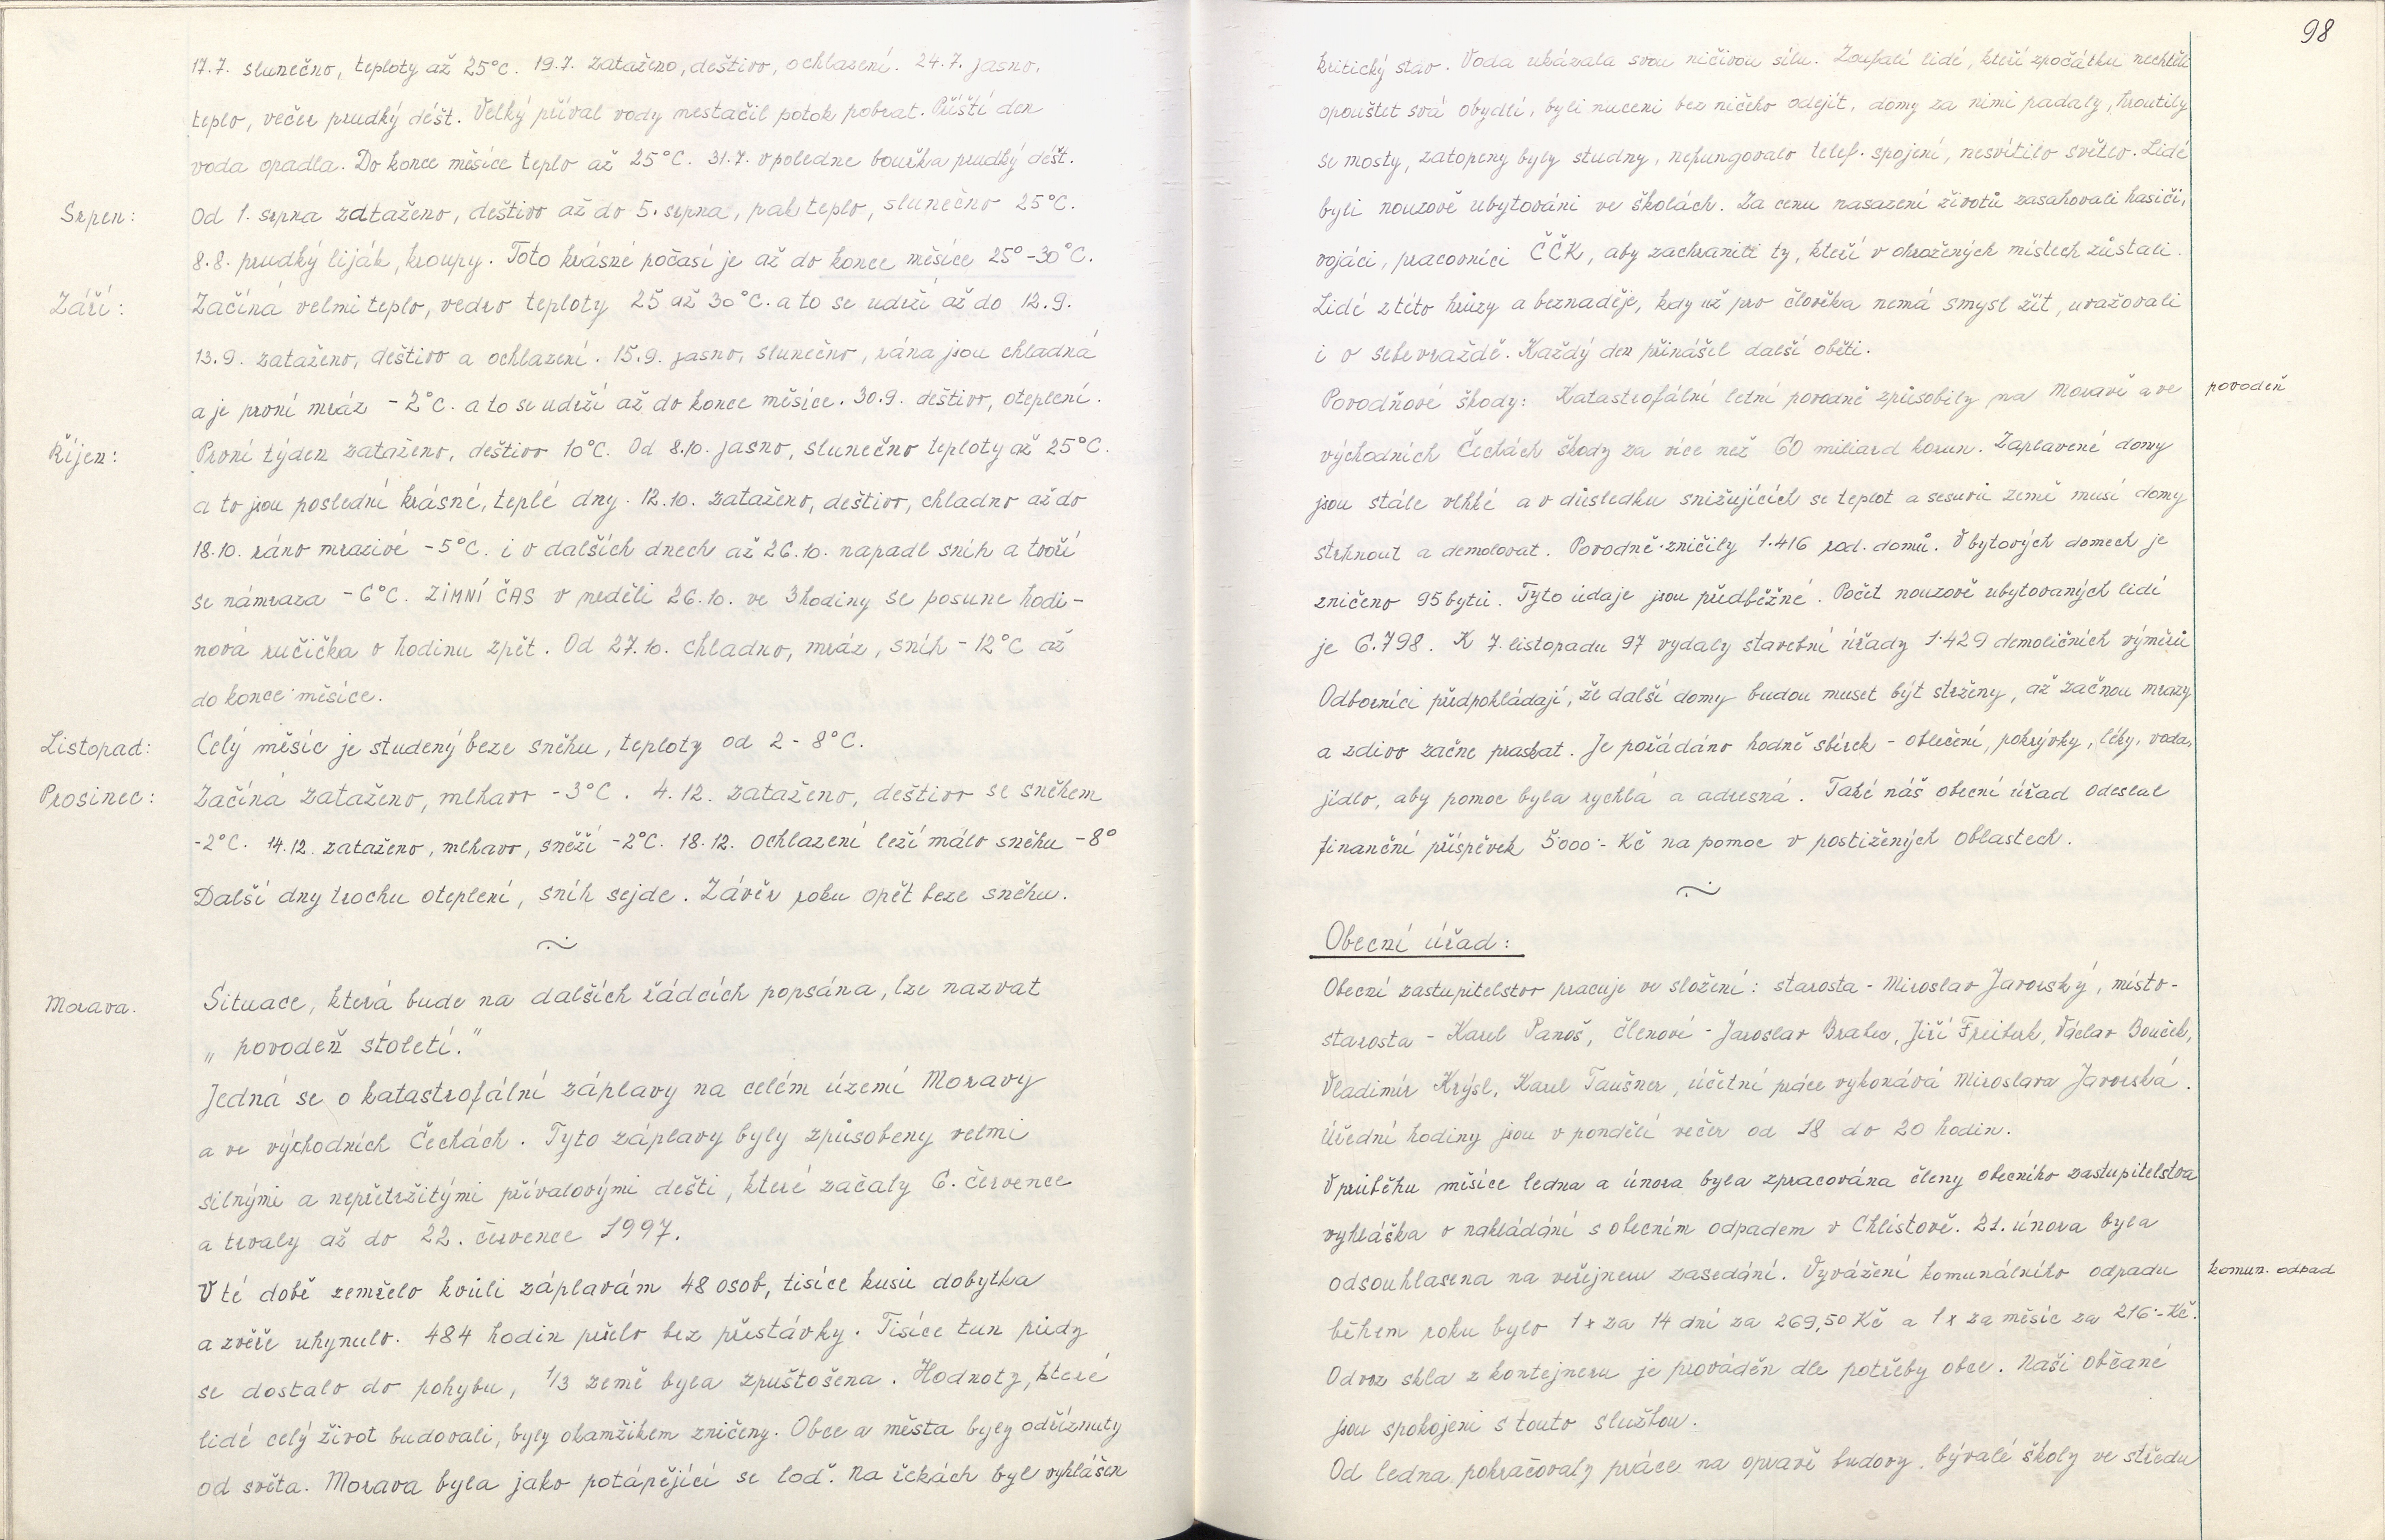 17.7. slunečno, teploty až 25°C. 19.7. zataženo, deštivo, ochlazení. 24.7. jasno,
teplo, večer prudký déšt. Velký příval vody nestačil potok pobrat. Příští den
voda opadla. Do konce měsíce teplo až 25°C. 31.7. vpoledne bouřka prudký déšt.
Srpen: Od 1. srpna zataženo, deštivo až do 5. srpna, pak teplo, slunečno 25°C.
8.8. prudký liják, kroupy. Toto krásné počasí je až do konce měsíce 25°-30°C.
Září: Začíná velmi teplo, vedro teploty 25 až 30°C. a to se udrží až do 12.9.
13.9. zataženo, deštivo a ochlazení. 15.9. jasno, slunečno, rána jsou chladná
a je první mráz -2°C. a to se udrží až do konce měsíce. 30.9. deštivo, oteplení.
Říjen: První týden zataženo, deštivo 10°C. Od 8.10. jasno, slunečno teploty až 25°C.
a to jsou poslední krásné, teplé dny. 12.10. zataženo, deštivo, chladno až do
18.10. ráno mrazivé -5°C. i v dalších dnech až 26.10. napadl sníh a tvoří
se námraza -6°C. ZIMNÍ ČAS v neděli 26.10. ve 3 hodiny se posune hodi-
nová ručička o hodinu zpět. Od 27.10. chladno, mráz, sníh -12°C až
do konce měsíce.
Listopad: Celý měsíc je studený beze sněhu, teploty od 2 - 8°C.
Prosinec: Začíná zataženo, mlhavo -3°C. 4.12. zataženo, deštivo se sněhem
-2°C. 14.12. zataženo, mlhavo, sněží -2°C. 18.12. ochlazení leží málo sněhu -8°
Další dny trochu oteplení, sníh sejde. Závěr roku opět beze sněhu.
Morava. Situace, která bude na dalších řádcích popsána, lze nazvat
„povodeň století."
Jedná se o katastrofální záplavy na celém území Moravy
a ve východních Čechách. Tyto záplavy byly způsobeny velmi
silnými a nepřetržitými přívalovými dešti, které začaly 6. července
a trvaly až do 22. července 1997.
V té době zemřelo kvůli záplavám 48 osob, tisíce kusů dobytka
a zvěře uhynulo. 484 hodin pršelo bez přestávky. Tisíce tun půdy
se dostalo do pohybu, 1/3 země byla zpuštošena. Hodnoty, které
lidé celý život budovali, byly okamžikem zničeny. Obce a města byly odříznuty
od světa. Morava byla jako potápějící se loď. Na řekách byl vyhlášen
98
kritický stav. Voda ukázala svou ničivou sílu. Zoufalí lidé, kteří zpočátku nechtěli
opouštet svá obydlí, byli nuceni bez ničeho odejít, domy za nimi padaly, hroutily
se mosty, zatopeny byly studny, nefungovalo telef. spojení, nesvítilo světlo. Lidé
byli nouzově ubytováni ve školách. Za cenu nasazení životů zasahovali hasiči,
vojáci, pracovníci ČČK, aby zachranili ty, kteří v ohrožených místech zůstali.
Lidé z této hrůzy a beznaděje, kdy už pro člověka nemá smysl žít, uvažovali
i o sebevraždě. Každý den přinášel další oběti.
Povodňové škody: Katastrofální letní povodně způsobily na Moravě a ve povodeň
východních Čechách škody za více než 60 miliard korun. Zaplavené domy
jsou stále vlhké a v důsledku snižujících se teplot a sesuvů země musí domy
strhnout a demolovat. Povodně zničily 1.416 rod. domů. V bytových domech je
zničeno 95 bytů. Tyto údaje jsou předběžné. Počet nouzově ubytovaných lidí
je 6.798. K 7. listopadu 97 vydaly stavební úřady 1.429 demoličních výměrů
Odborníci předpokládají, že další domy budou muset být strženy, až začnou mrazy
a zdivo začne praskat. Je pořádáno hodně sbírek - oblečení, pokrývky, léky, voda,
jídlo, aby pomoc byla rychlá a adresná. Také náš obecní úřad odeslal
finanční příspěvek 5000.- Kč na pomoc v postižených oblastech.
Obecní úřad:
Obecní zastupitelstvo pracuje ve složení: starosta - Miroslav Javorský, místo-
starosta - Karel Panoš, členové - Jaroslav Brabec, Jiří Freiberk, Václav Bouček,
Vladimír Krýsl, Karel Taušner, účetní práce vykonává Miroslava Javorská.
Úřední hodiny jsou v pondělí večer od 18 do 20 hodin.
V průběhu měsíce ledna a února byla zpracována členy obecního zastupitelstva
vyhláška o nakládání s obecním odpadem v Chlístově. 21. února byla
odsouhlasena na veřejném zasedání. Vyvážení komunálního odpadu komun. odpad
během roku bylo 1x za 14 dní za 269,50 Kč a 1x za měsíc za 216.- Kč.
Odvoz skla z kontejneru je prováděn dle potřeby obce. Naši občané
jsou spokojeni s touto službou.
Od ledna pokračovaly práce na opravě budovy bývalé školy ve středu